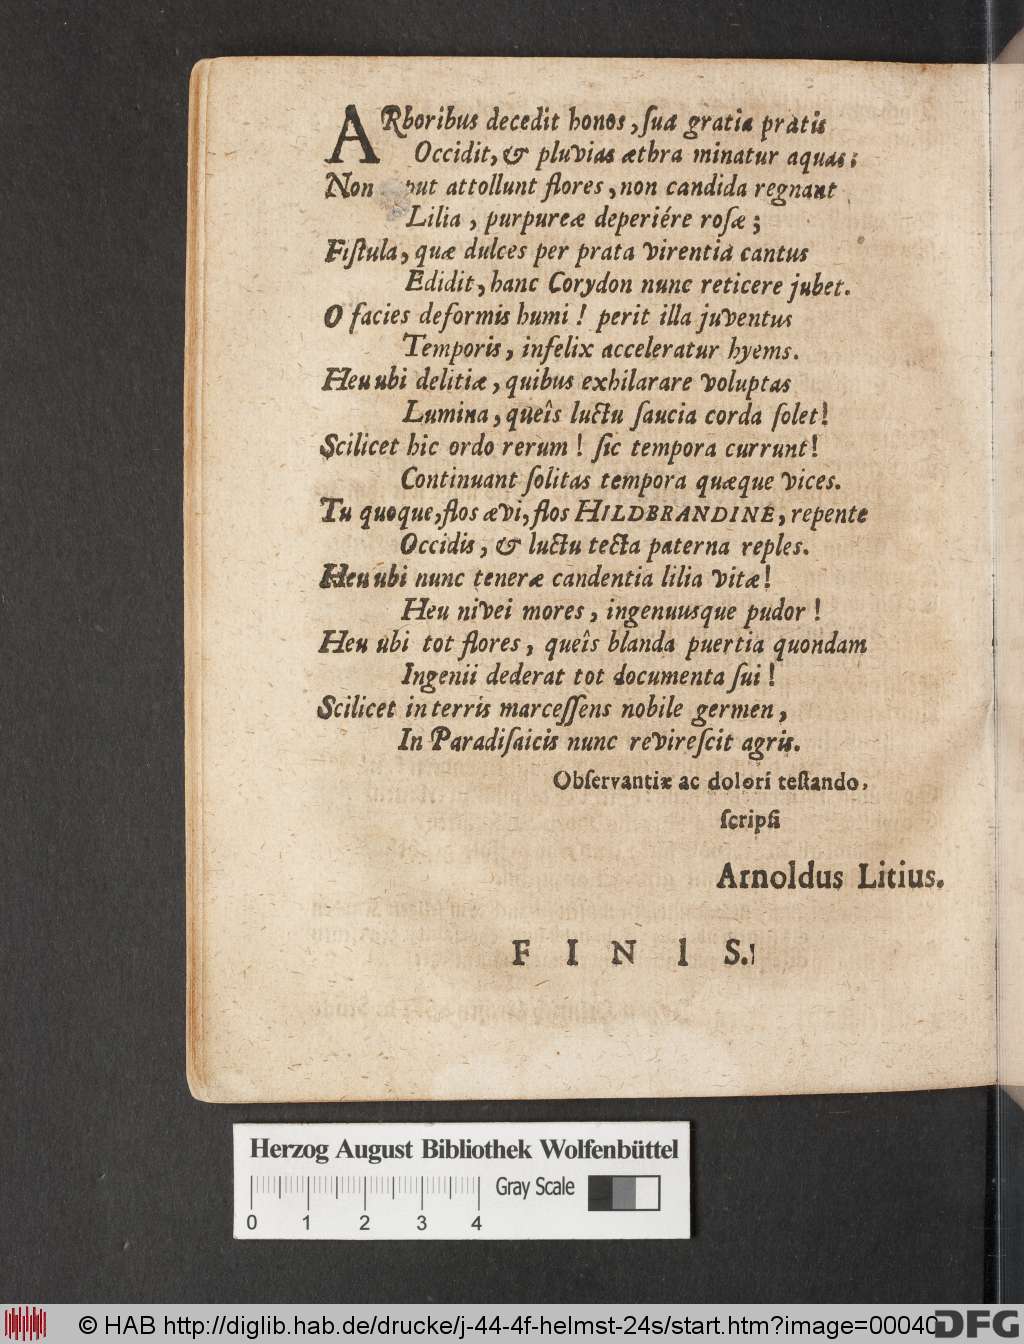 ARboribus decedit honos, sua gratia pratis
Occidit, & pluvias æthra minatur aquas;
Non put attollunt flores, non candida regnant
Lilia, purpureæ deperiére rosæ;
Fistula, quæ dulces per prata virentia cantus
Edidit, hanc Corydon nunc reticere jubet.
O facies deformis humi! perit illa juventus
Temporis, infelix acceleratur hyems.
Heu ubi delitiæ, quibus exhilarare voluptas
Lumina, queîs luctu saucia corda solet!
Scilicet hic ordo rerum! sic tempora currunt!
Continuant solitas tempora quæque vices.
Tu quoque, flos ævi, flos HILDBRANDINE, repente
Occidis, & luctu tecta paterna reples.
Heu ubi nunc teneræ candentia lilia vitæ!
Heu nivei mores, ingenuusque pudor!
Heu ubi tot flores, queîs blanda puertia quondam
Ingenii dederat tot documenta sui!
Scilicet in terris marcessens nobile germen,
In Paradisaicis nunc revirescit agris.
Observantiæ ac dolori testando,
scripsi
Arnoldus Litius.
FINIS.
Herzog August Bibliothek Wolfenbüttel
Gray Scale
0 1 2 3 4
© HAB http://diglib.hab.de/drucke/j-44-4f-helmst-24s/start.htm?image=00040
DFG